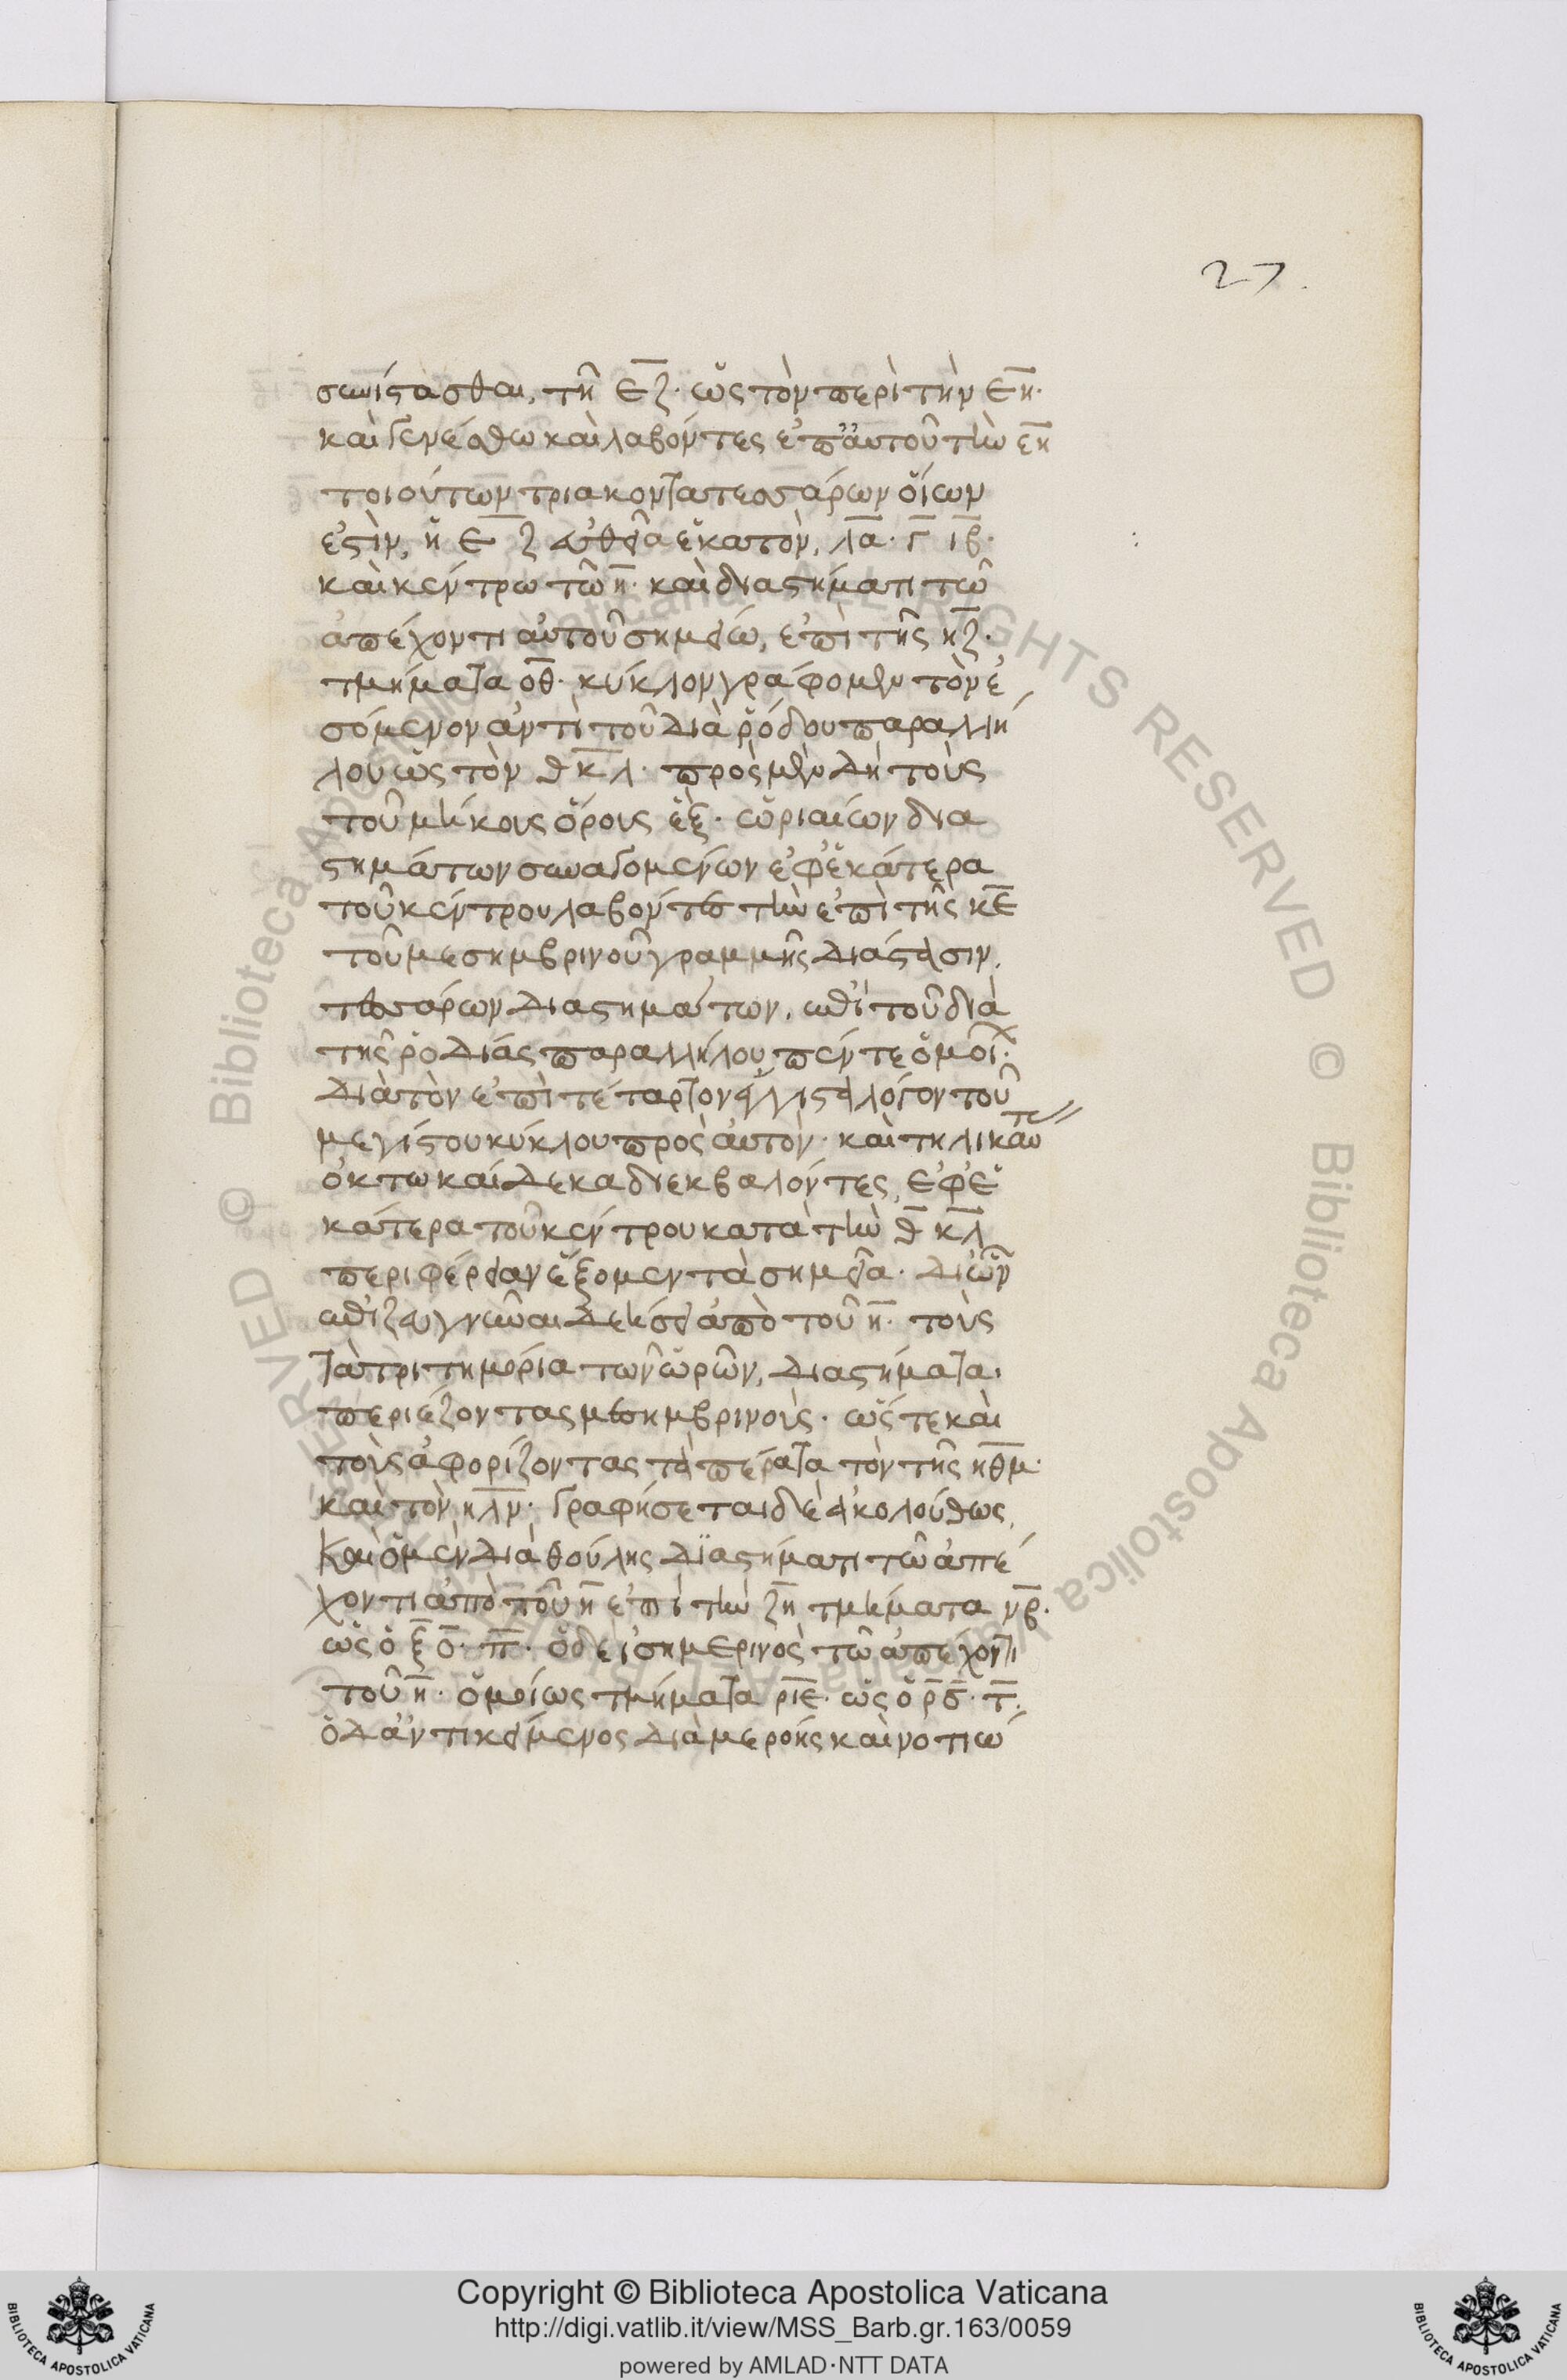 27.
συνίστασθαι, τῆ ε̅ζ̅· ὡς τὸν περὶ τὴν ε̅η̅·
καὶ γενέσθω καὶ λαβόντες ἐπ' αὐτοῦ τὴν ε̅η̅
τοιούτων τριακοντατεσσάρων οἵων
ἐστὶν, ἡ ε̅ ζ̅ εὐθεῖα ἑκατὸν, λ̅α̅· γ̅ ι̅β̅·
καὶ κέντρω τῶ η̅· καὶ διαστήματι τῶ
ἀπέχοντι αὐτοῦ σημείω, ἐπὶ τῆς η̅ζ̅·
τμήματα ο̅θ̅· κύκλον γράφομεν τὸν ἐ
σόμενον ἀντὶ τοῦ διὰ ῥόδου παραλλή
λου ὡς τὸν θ̅ κ̅ λ̅· πρὸς μὲν δὴ τοὺς
τοῦ μήκους ὅρους ἓξ· ὡριαίων δια
στημάτων συναγομένων ἐφ' ἑκάτερα
τοῦ κέντρου λαβόντες τὴν ἐπὶ τῆς κ̅ε̅
τοῦ μεσημβρινοῦ γραμμῆς διάστασιν,
τεσσάρων διαστημάτων, ἐπὶ τοῦ διὰ
τῆς ῥοδιάς παραλλήλου πέντε ὁμοί·
διὰ τὸν ἐπὶ τέταρτον ἔγγιστα λόγον τοῦ
μεγίστου κύκλου πρὸς αὐτὸν· καὶ τηλικαύτ
ὀκτωκαίδεκα διεκβαλόντες, ἐφ' ἑ
κάτερα τοῦ κέντρου κατὰ τὴν θ̅ κ̅λ̅
περιφέρειαν ἕξομεν τὰ σημεῖα· δι' ὧν
ἐπιζευγνῦναι δεήσει ἀπὸ τοῦ η̅· τοὺς
τὰ τριτημόρια τῶν ὡρῶν, διαστήματα·
περιέζοντας μεσημβρινούς· ὥς τε καὶ
τοὺς ἀφορίζοντας τὰ πέρατα τὸν τῆς η̅θ̅μ̅·
καὶ τὸν η̅λ̅ν̅· γραφήσεται δὲ ἀκολούθως,
καὶ ὁ μὲν διὰ θούλης διαστήματι τῶ ἀπέ
χοντι ἀπὸ τοῦ η̅ ἐπὶ τὴν ζ̅η̅ τμήματα ν̅β̅·
ὡς ὁ ξ̅ ο̅· π̅· ὁ δὲ ἰσημερινὸς τῶ ἀπέχοντι
τοῦ η̅· ὁμοίως τμήματα ρ̅ι̅ε̅· ὡς ὁ ρ̅ σ̅· τ̅·
ὁ δ' ἀντικείμενος διὰ μερόης καὶ νοτιώ
Copyright © Biblioteca Apostolica Vaticana
http://digi.vatlib.it/view/MSS_Barb.gr.163/0059
powered by AMLAD·NTT DATA